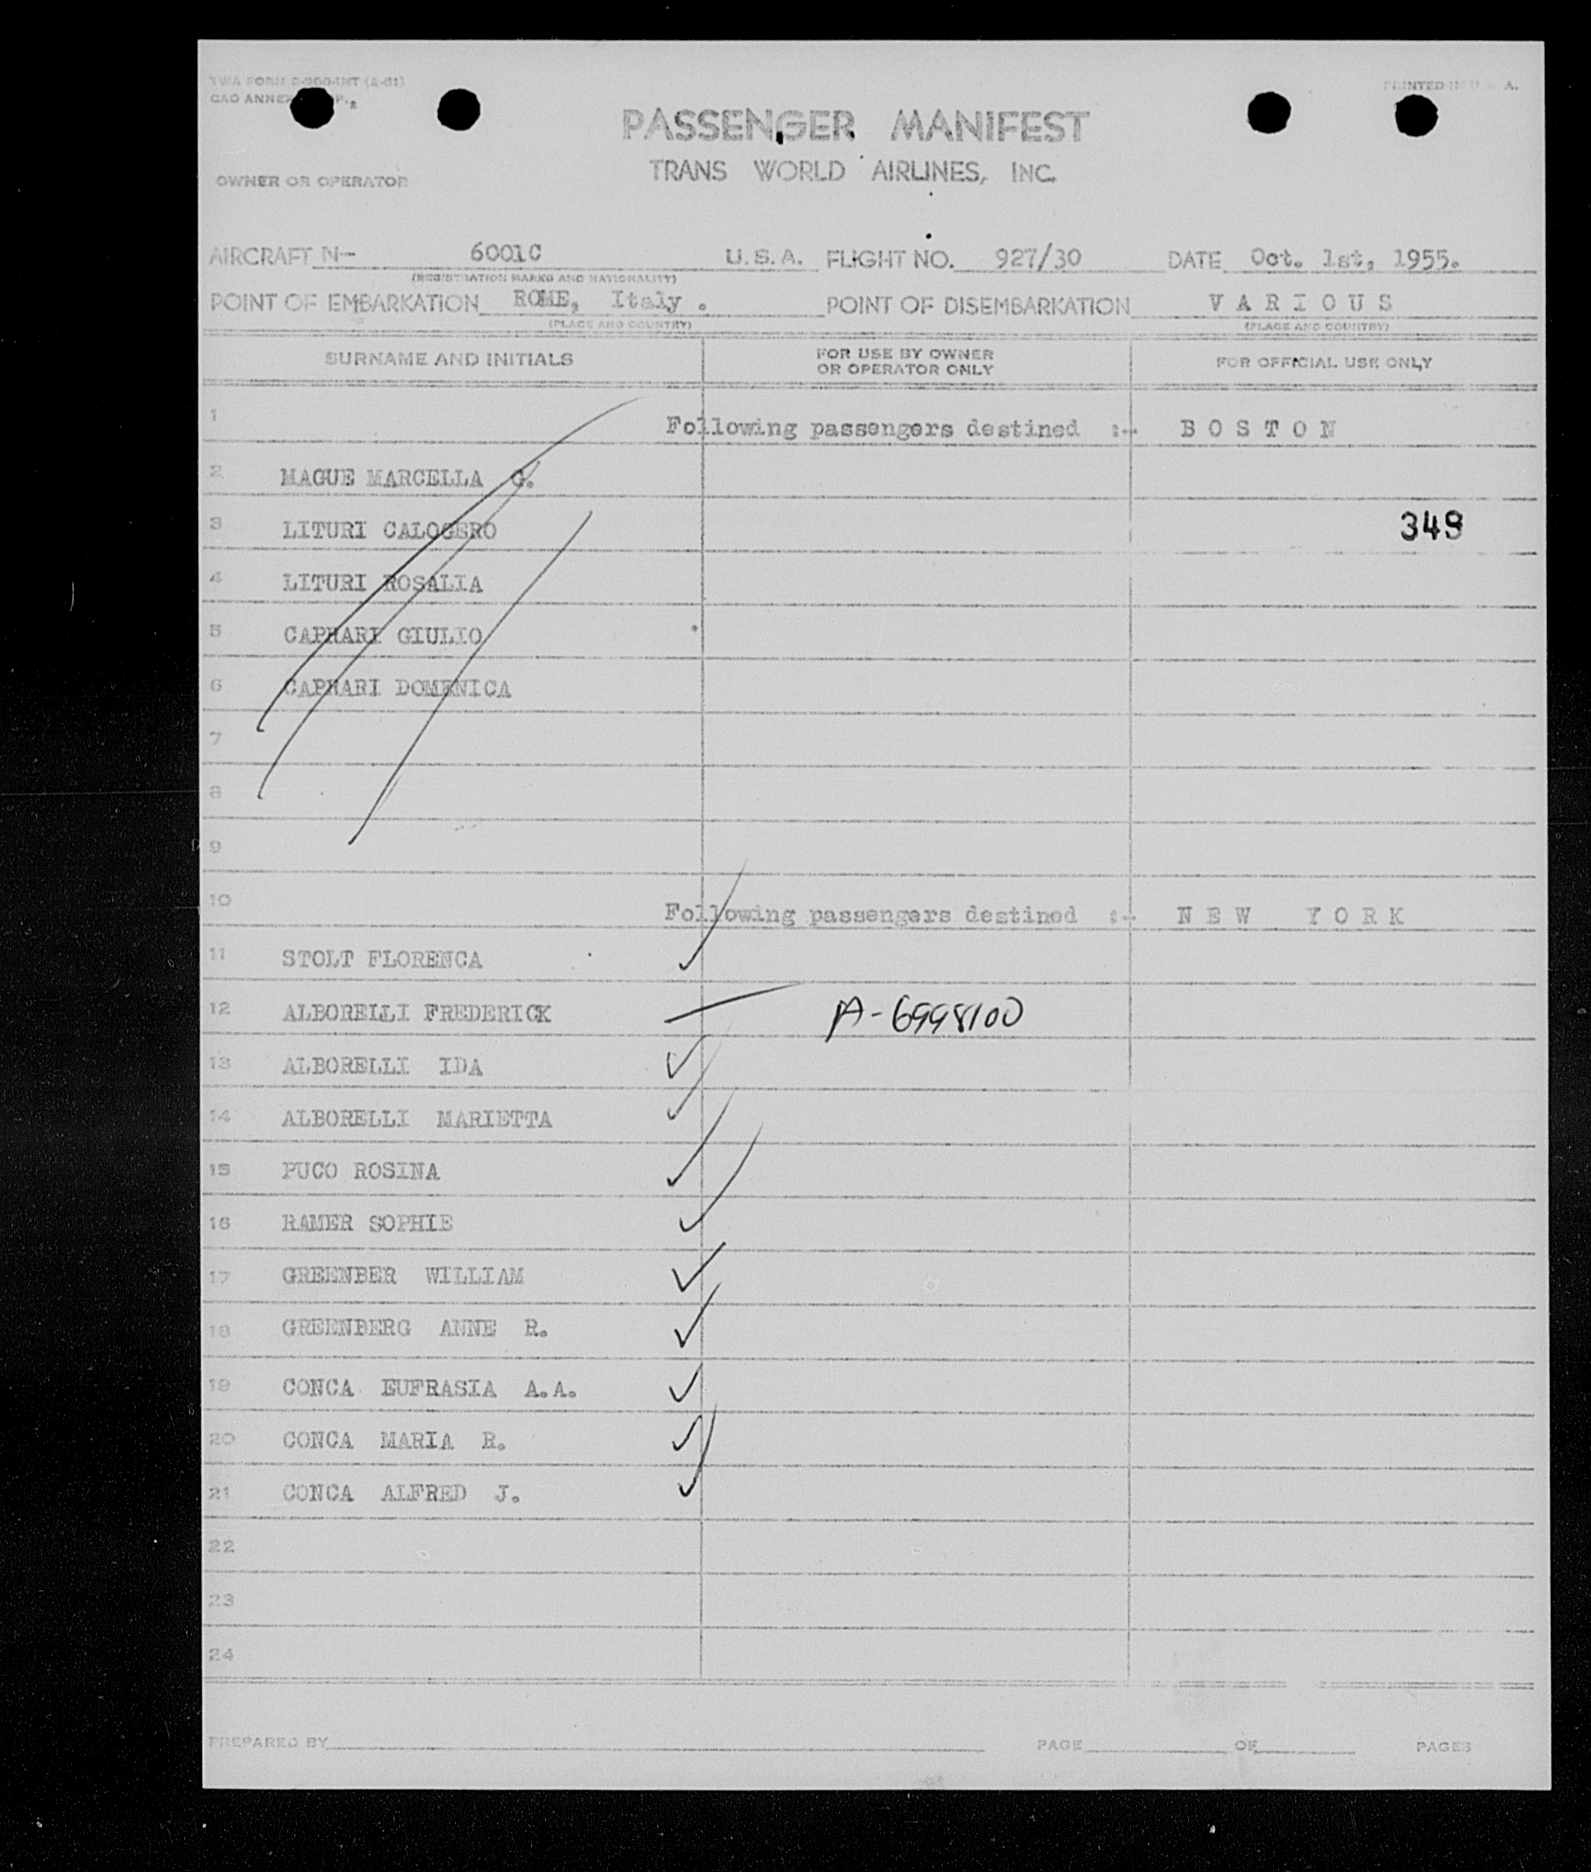 TWA FORM
CAO ANNEX
PRINTED IN U. S. A.
PASSENGER MANIFEST
TRANS WORLD AIRLINES, INC.
OWNER OR OPERATOR
AIRCRAFT N- 6001C U.S.A. FLIGHT NO. 927/30 DATE Oct. 1st, 1955.
(REGISTRATION MARKS AND NATIONALITY)
POINT OF EMBARKATION ROME, Italy . POINT OF DISEMBARKATION V A R I O U S
(PLACE AND COUNTRY) (PLACE AND COUNTRY)
SURNAME AND INITIALS FOR USE BY OWNER OR OPERATOR ONLY FOR OFFICIAL USE ONLY
1 Following passengers destined :- B O S T O N
2 MAGUE MARCELLA G.
3 LITURI CALOGERO 348
4 LITURI ROSALIA
5 CAPHARI GIULIO
6 CAPHARI DOMENICA
7
8
9
10 Following passengers destined :- N E W Y O R K
11 STOLT FLORENCA
12 ALBORELLI FREDERICK A-6998100
13 ALBORELLI IDA
14 ALBORELLI MARIETTA
15 PUCO ROSINA
16 RAMER SOPHIE
17 GREENBER WILLIAM
18 GREENBERG ANNE R.
19 CONCA EUFRASIA A.A.
20 CONCA MARIA R.
21 CONCA ALFRED J.
22
23
24
PREPARED BY PAGE OF PAGES